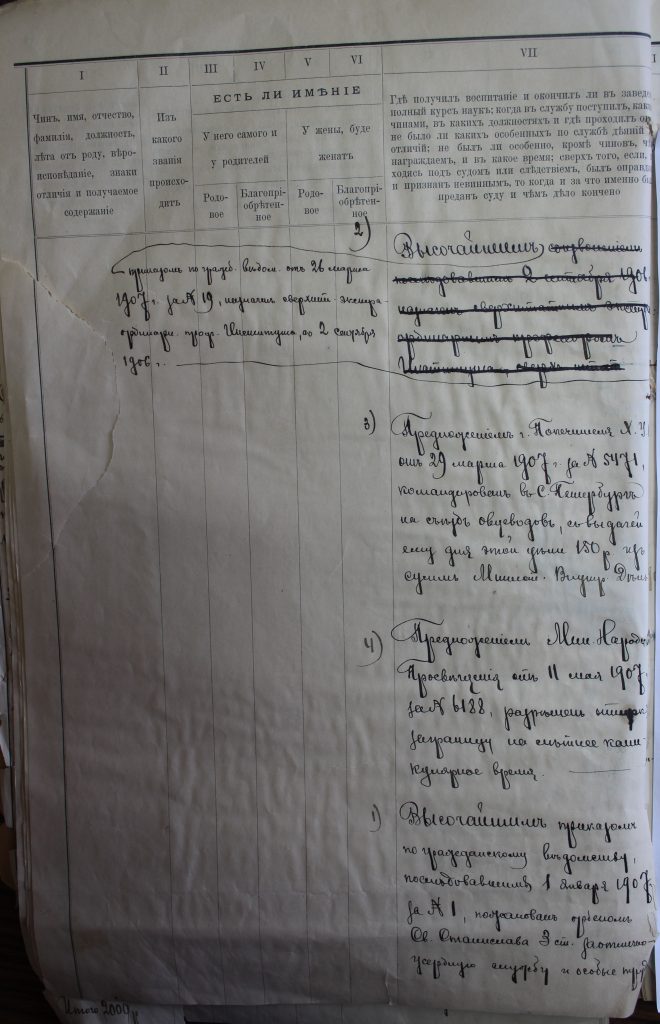 I II III IV V VI VII
Чинъ, имя, отчество,
фамилія, должность,
лѣта отъ роду, вѣро-
исповѣданіе, знаки
отличія и получаемое
содержаніе
Изъ
какого
званія
происхо-
дитъ
ЕСТЬ ЛИ ИМѢНІЕ
У него самого и
у родителей
У жены, буде
женатъ
Родо-
вое
Благопрі-
обрѣтен-
ное
Родо-
вое
Благопрі-
обрѣтен-
ное
Гдѣ получилъ воспитаніе и окончилъ ли въ заведе
полный курсъ наукъ; когда въ службу поступилъ, как
чинами, въ какихъ должностяхъ и гдѣ проходилъ о
не было ли какихъ особенныхъ по службѣ дѣяній
отличій; не былъ ли особенно, кромѣ чиновъ, ч
награждаемъ, и въ какое время; сверхъ того, если,
ходясь подъ судомъ или слѣдствіемъ, былъ оправд
и признанъ невиннымъ, то когда и за что именно б
преданъ суду и чѣмъ дѣло кончено
2) Высочайшимъ
послѣдовавшимъ 2 сентября 190
назначенъ сверхштатнымъ экстра
ординарнымъ профессоромъ
Института, сверхъ штата
приказомъ по гражд. вѣдом. отъ 26 марта
1907 г. за № 19, назначенъ сверхшт. экстра
ординарн. проф. Института, со 2 сентября
1906 г.
3) Предложеніемъ г. Попечителя Х. У
отъ 29 марта 1907 г. за № 5471,
командированъ въ С. Петербургъ
на съѣздъ овцеводовъ, съ выдачей
ему для этой цѣли 150 р. изъ
суммъ Минист. Внутр. Дѣлъ
4) Предложеніемъ Мин. Народн
Просвѣщенія отъ 11 мая 1907
за № 6188, разрѣшенъ отпускъ
заграницу на лѣтнее кани-
кулярное время.
1) Высочайшимъ приказомъ
по гражданскому вѣдомству,
послѣдовавшимъ 1 января 1907
за № 1, пожалованъ орденомъ
Св. Станислава 3 ст. за отлично-
усердную службу и особые труд
Итого 2000 р